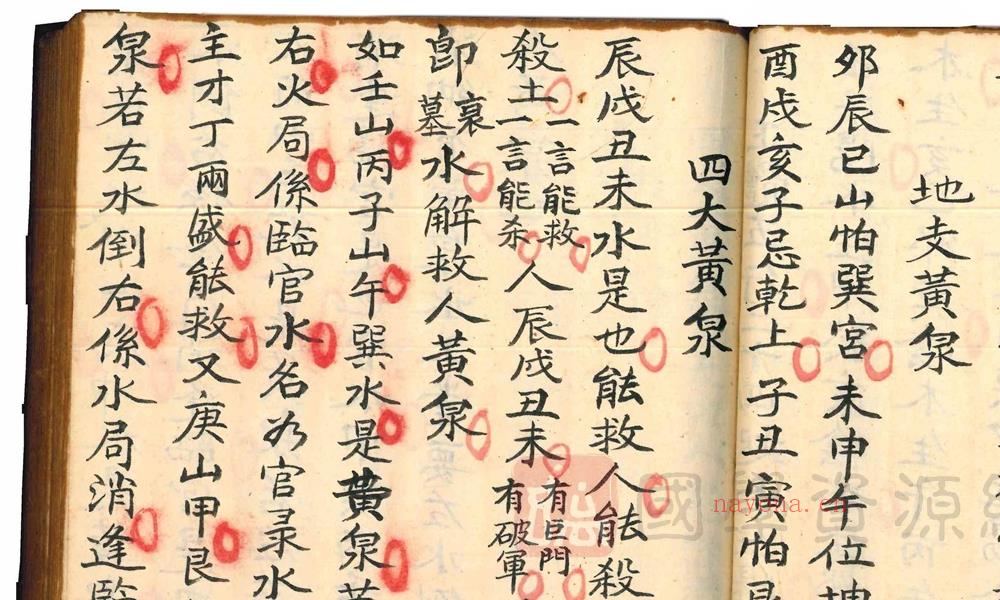 地支黃泉
夘辰巳山怕巽宮未申午位坤
酉戍亥子忌乾上子丑寅怕艮
四大黃泉
辰戍丑未水是也能救人能殺
殺土一言能救一言能杀人辰戍丑未有巨門有破軍
卽衰墓水解救人黃泉
如壬山丙子山午巽水是黃泉若
右火局係臨官水名为官录水
主才丁兩盛能救又庚山甲艮
泉若左水倒右係水局消逢臨
nayona.cn